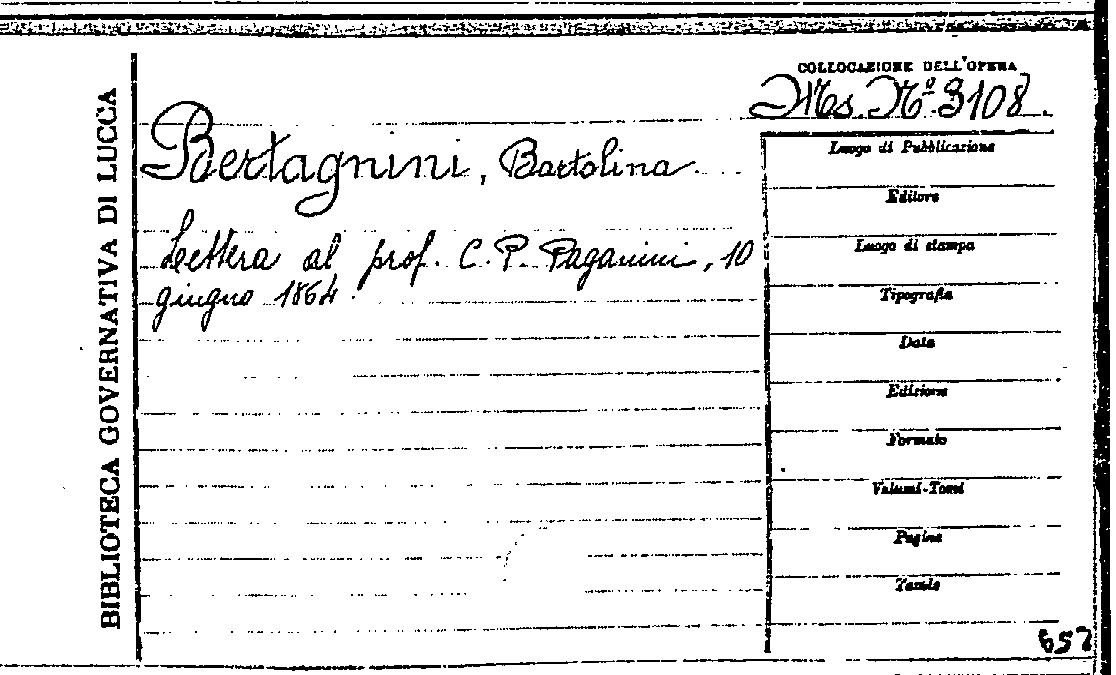 BIBLIOTECA GOVERNATIVA DI LUCCA
COLLOCAZIONE DELL'OPERA
Ms. Nº 3108.
Bertagnini, Bartolina
Lettera al prof. C. P. Paganini, 10
giugno 1864.
Luogo di Pubblicazione
Editore
Luogo di stampa
Tipografia
Data
Edizione
Formato
Volumi-Tomi
Pagine
Tavole
657